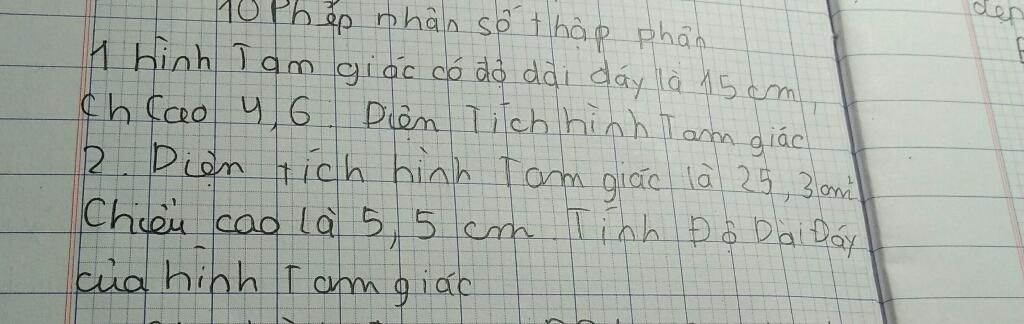 10 Phép nhân số thập phân
1 hình Tam giác có độ dài đáy là 15 cm,
ch cao 4,6. Diện Tích hình Tam giác
2. Diện tích hình Tam giác là 25,3cm²
Chiều cao là 5,5 cm. Tính Độ Dài Đáy
của hình Tam giác